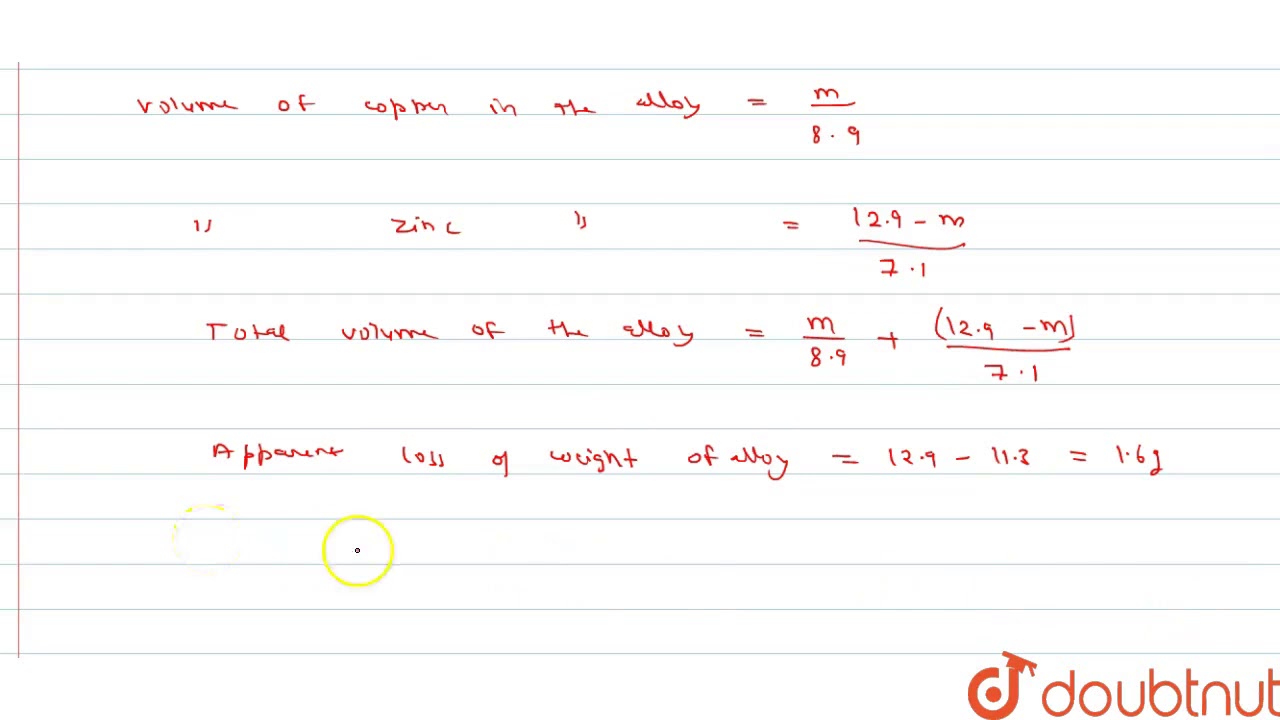 volume of copper in the alloy = m/8.9
" zinc " = 12.9 - m/7.1
Total volume of the alloy = m/8.9 + (12.9 - m)/7.1
Apparent loss of weight of alloy = 12.9 - 11.3 = 1.6g
doubtnut